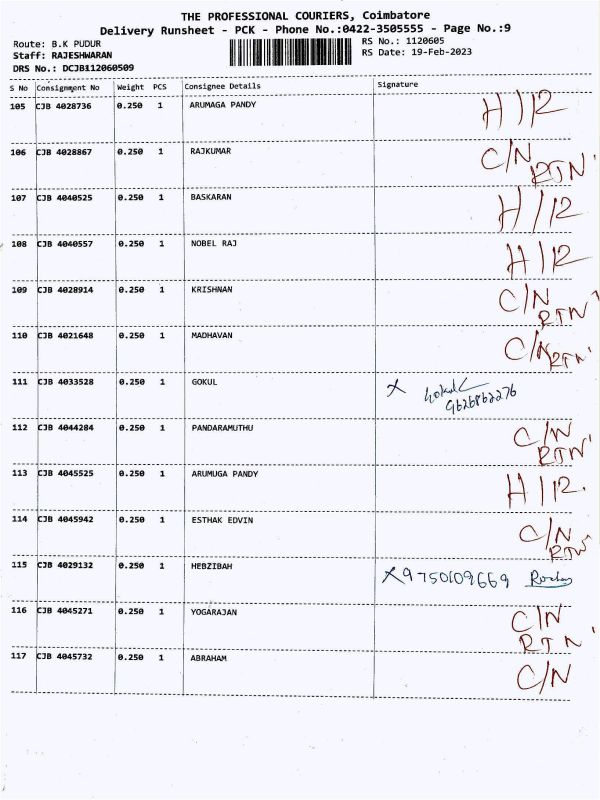 THE PROFESSIONAL COURIERS, Coimbatore
Delivery Runsheet - PCK - Phone No.:0422-3505555 - Page No.:9
Route: B.K PUDUR RS No.: 1120605
Staff: RAJESHWARAN RS Date: 19-Feb-2023
DRS No.: DCJB112060509
S No Consignment No Weight PCS Consignee Details Signature
105 CJB 4028736 0.250 1 ARUMAGA PANDY H/12
106 CJB 4028867 0.250 1 RAJKUMAR C/N
RTN
107 CJB 4040525 0.250 1 BASKARAN H/12
108 CJB 4040557 0.250 1 NOBEL RAJ H/12
109 CJB 4028914 0.250 1 KRISHNAN C/N
RTN
110 CJB 4021648 0.250 1 MADHAVAN C/N RTN
111 CJB 4033528 0.250 1 GOKUL X Gokul
9626862276
112 CJB 4044284 0.250 1 PANDARAMUTHU C/N
RTN
113 CJB 4045525 0.250 1 ARUMUGA PANDY H/12.
114 CJB 4045942 0.250 1 ESTHAK EDVIN C/N
RTN
115 CJB 4029132 0.250 1 HEBZIBAH X 9750109669
116 CJB 4045271 0.250 1 YOGARAJAN C/N
RTN
117 CJB 4045732 0.250 1 ABRAHAM C/N